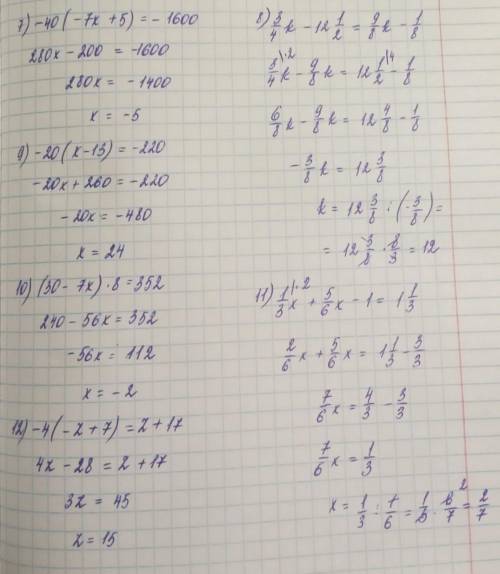 7) -40(-7x+5) = -1600
280x - 200 = -1600
280x = -1400
x = -5
9) -20(x-13) = -220
-20x + 260 = -220
-20x = -480
x = 24
10) (30 - 7x)·8 = 352
240 - 56x = 352
-56x = 112
x = -2
12) -4(-z+7) = z+17
4z - 28 = z+17
3z = 45
z = 15
8) 3/4 k - 12 1/2 = 9/8 k - 1/8
3/4 \·2 k - 9/8 k = 12 1/2 \4 - 1/8
6/8 k - 9/8 k = 12 4/8 - 1/8
- 3/8 k = 12 3/8
k = 12 3/8 : (- 3/8) =
= 12 3/8 · 8/3 = 12
11) 1/3 x \·2 + 5/6 x - 1 = 1 1/3
2/6 x + 5/6 x = 1 1/3 - 3/3
7/6 x = 4/3 - 3/3
7/6 x = 1/3
x = 1/3 : 7/6 = 1/3 · 6/7 2 = 2/7